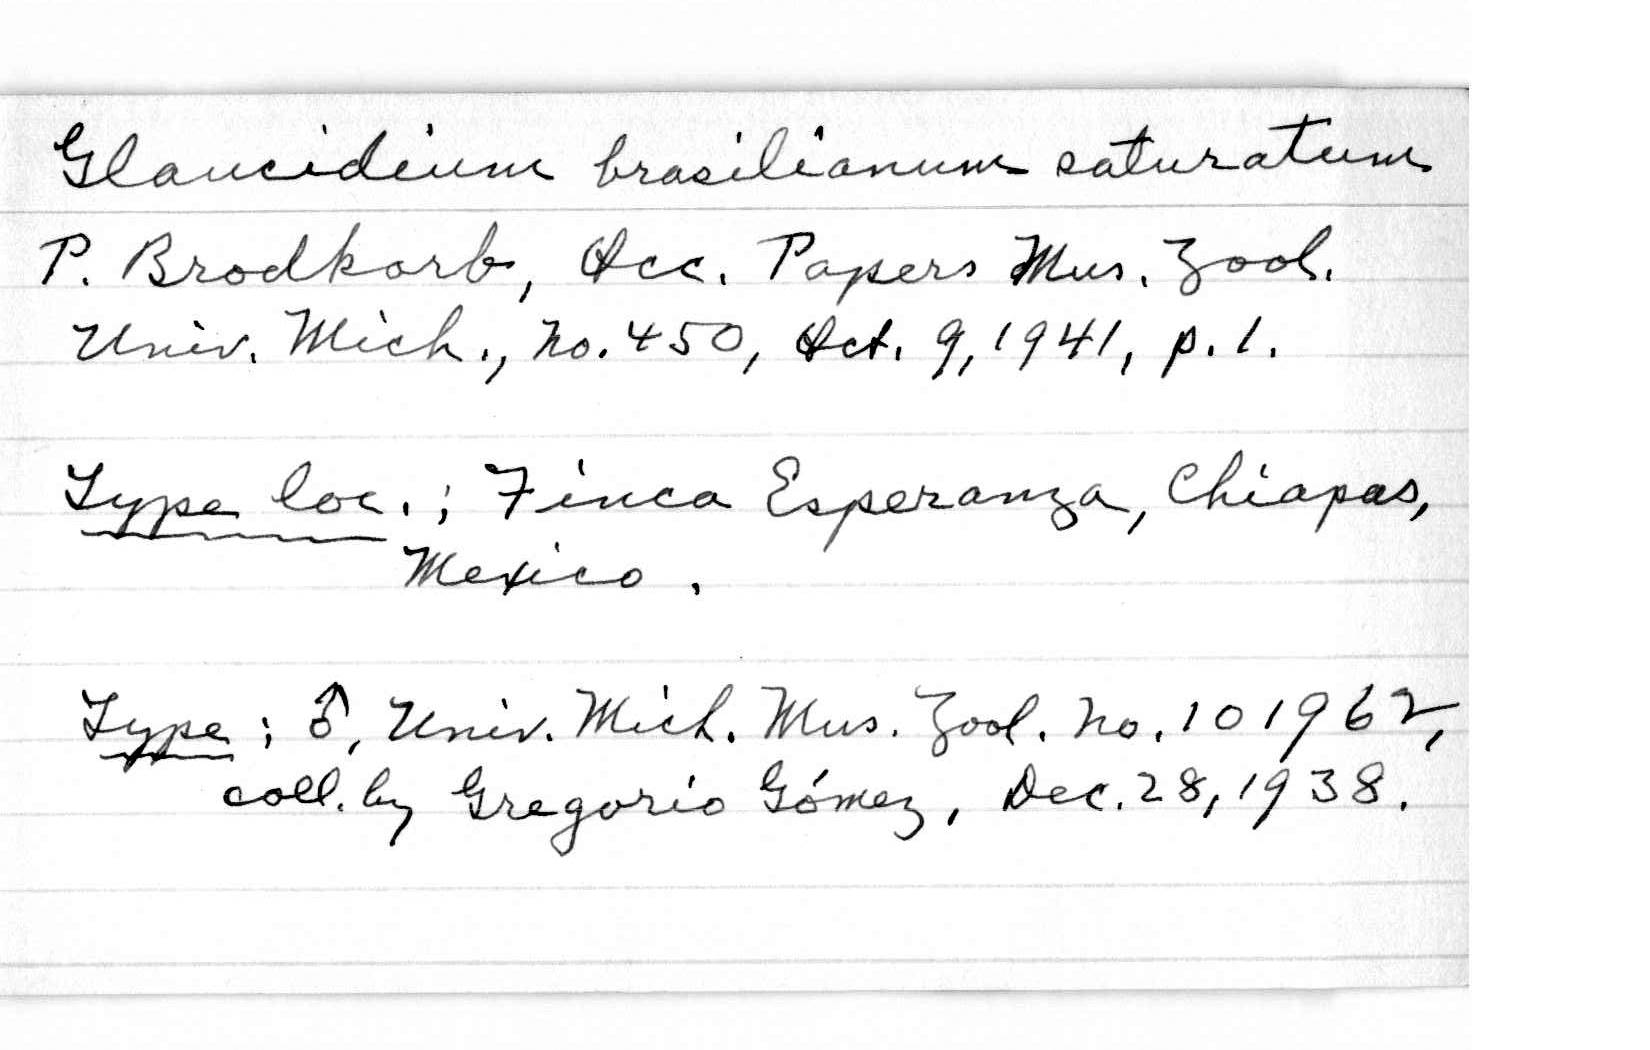 Glaucidium brasilianum saturatum
P. Brodkorb, Occ. Papers Mus. Zool.
Univ. Mich., no. 450, Oct. 9, 1941, p. 1.
Type loc.; Finca Esperanza, Chiapas,
Mexico.
Type; ♂, Univ. Mich. Mus. Zool. no. 101962,
coll. by Gregorio Gómez, Dec. 28, 1938.